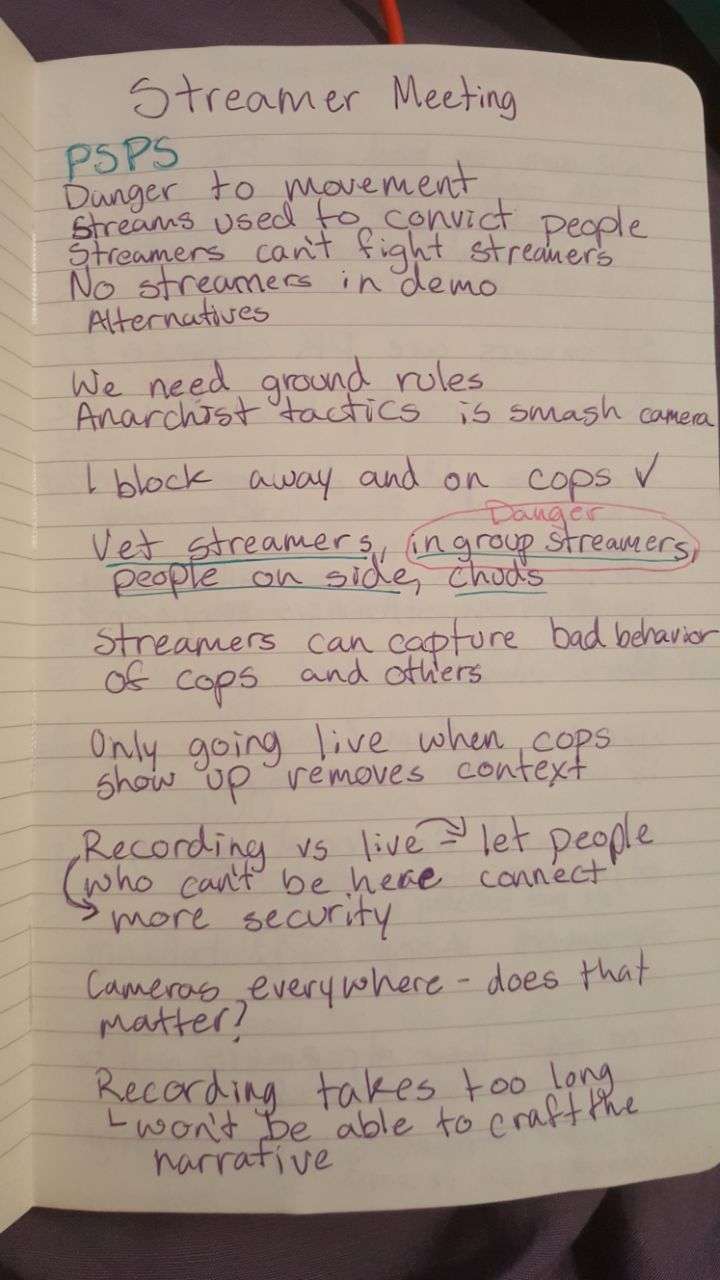 Streamer Meeting
PSPS
Danger to movement
Streams used to convict people
Streamers can't fight streamers
No streamers in demo
Alternatives
We need ground rules
Anarchist tactics is smash camera
1 block away and on cops ✓
Danger
Vet streamers, in group streamers,
people on side, chuds
Streamers can capture bad behavior
of cops and others
Only going live when cops
show up removes context
Recording vs live → let people
who can't be here connect
→ more security
Cameras everywhere - does that
matter?
Recording takes too long
└ won't be able to craft the
narrative